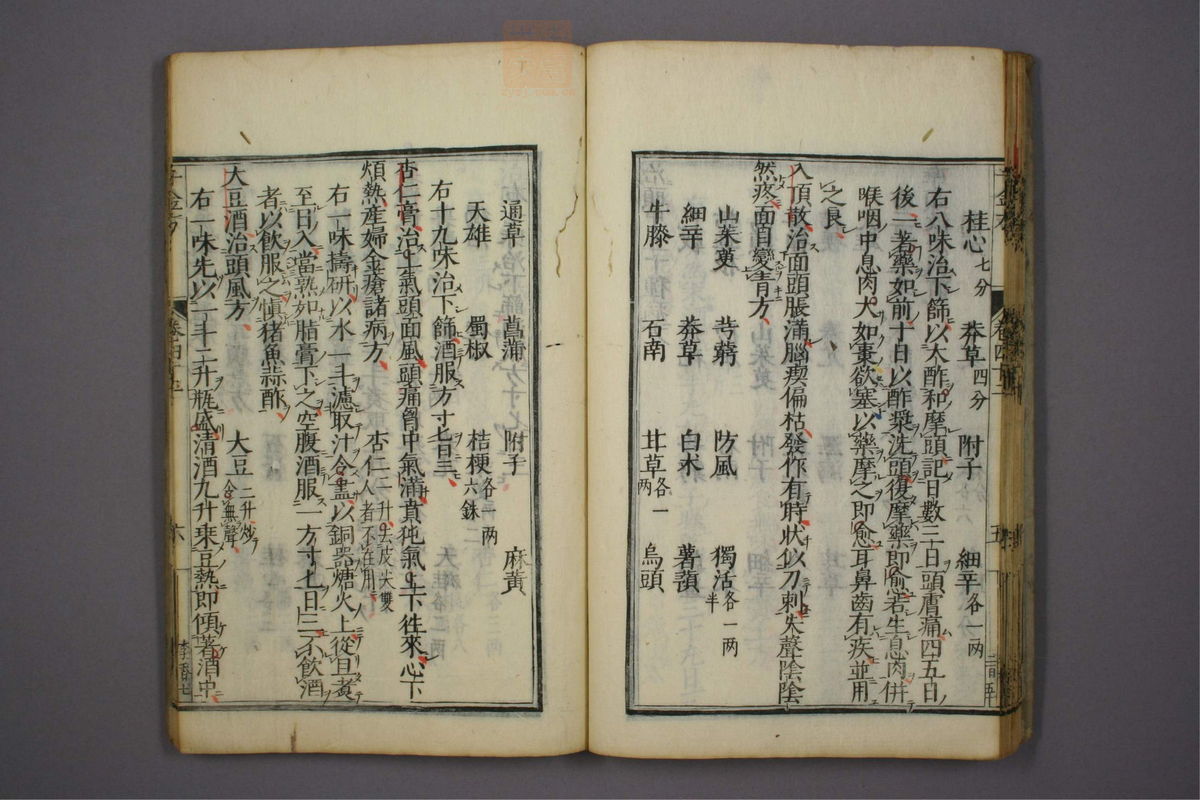 桂心七分　莽草四分　附子　細辛各一兩
右八味治下篩以大酢和摩頭記日數三日頭膚痛四五日
後一著藥如前十日以酢漿洗頭復摩藥即愈若生息肉併
喉咽中息肉大如棗欲塞以藥摩之即愈耳鼻齒有疾並用
之良
入頂散治面頭脹滿腦瘈偏枯發作有時狀似刀刺失聲陰陰
然疼面目變青方
山茱萸　芎藭　防風　獨活各一兩半
細辛　莽草　白朮　薯蕷
牛膝　石南　甘草各一兩　烏頭
通草　菖蒲　附子　麻黃
天雄　蜀椒　桔梗各一兩六銖
右十九味治下篩酒服方寸匕日三
杏仁膏治上氣頭面風頭痛胷中氣滿賁㹠氣上下往來心下
煩熱產婦金瘡諸病方　杏仁二升去皮尖雙人者不在用
右一味擣研以水一斗濾取汁令盡以銅器煻火上從旦煑
至日入當熟如脂膏下之空腹酒服一方寸匕日三不飲酒
者以飲服之慎猪魚蒜酢
大豆酒治頭風方　大豆二升炒令無聲
右一味先以一斗二升瓶盛清酒九升乘豆熱即傾著酒中
千金方
卷四十五
六
李香七